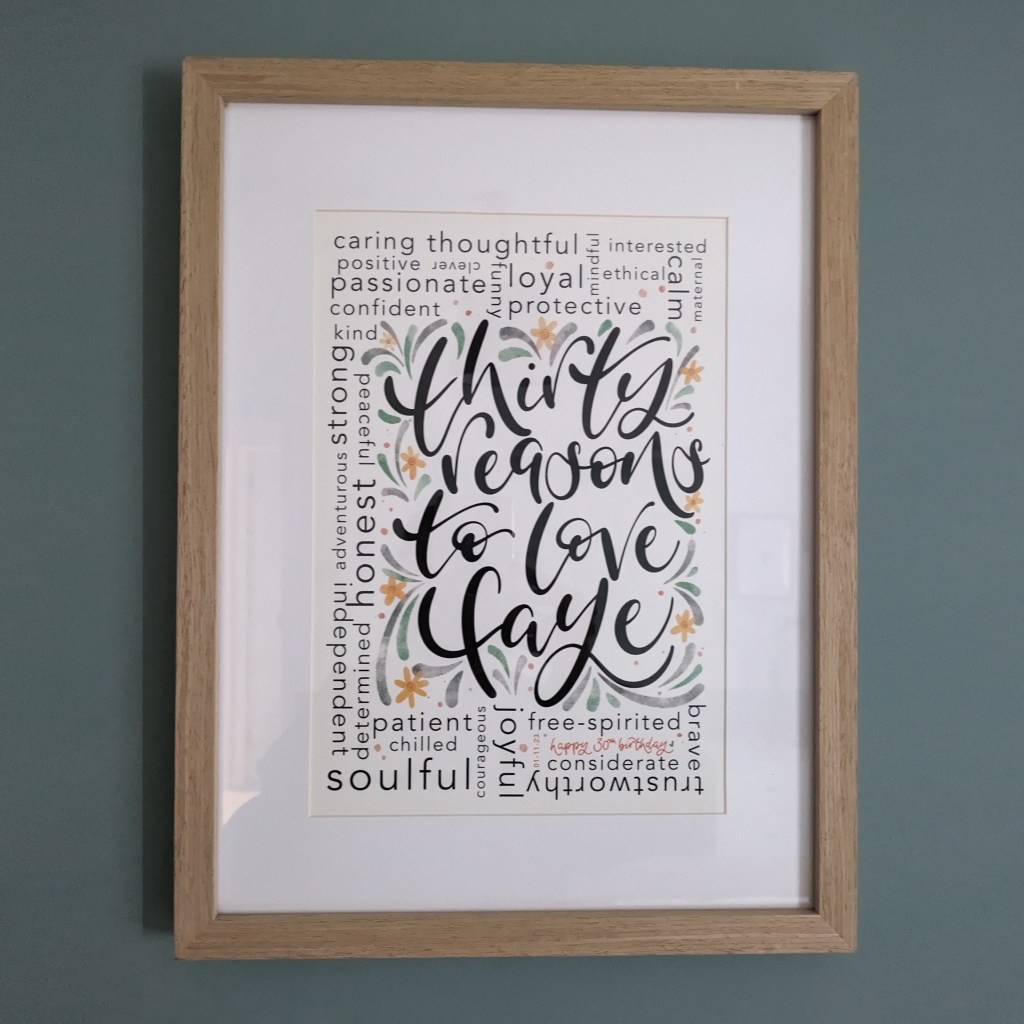 caring thoughtful
mindful
interested
positive
clever
funny
loyal
ethical
calm
maternal
passionate
confident
protective
kind
strong
peaceful
adventurous
honest
independent
determined
thirty
reasons
to love
faye
patient
chilled
soulful
courageous
joyful
free-spirited
01:11:23
happy 30th birthday
considerate
trustworthy
brave